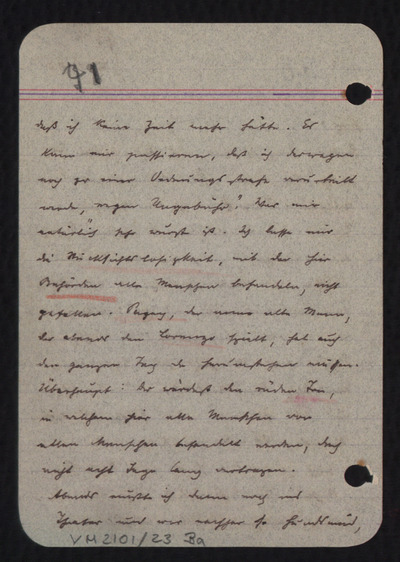 71
daß ich keine Zeit mehr hätte. Es
kann mir passieren, daß ich deswegen
noch zu einer Ordnungsstrafe verurteilt
werde, wegen "Ungebühr". Was mir
natürlich sehr wurst ist. Ich lasse mir
die Rücksichtslosigkeit, mit der hier
Behörden alle Menschen behandeln, nicht
gefallen. , der arme alte Mann,
der abends den Lorenzo spielt, hat auch
den ganzen Tag da herumstehen müssen.
Überhaupt: Du würdest den rüden Ton,
in welchem hier alle Menschen von
allen Menschen behandelt werden, doch
nicht acht Tage lang ertragen.
Abends mußte ich dann noch ins
Theater und war nachher so hundsmüd,
VM2101/23 Ba